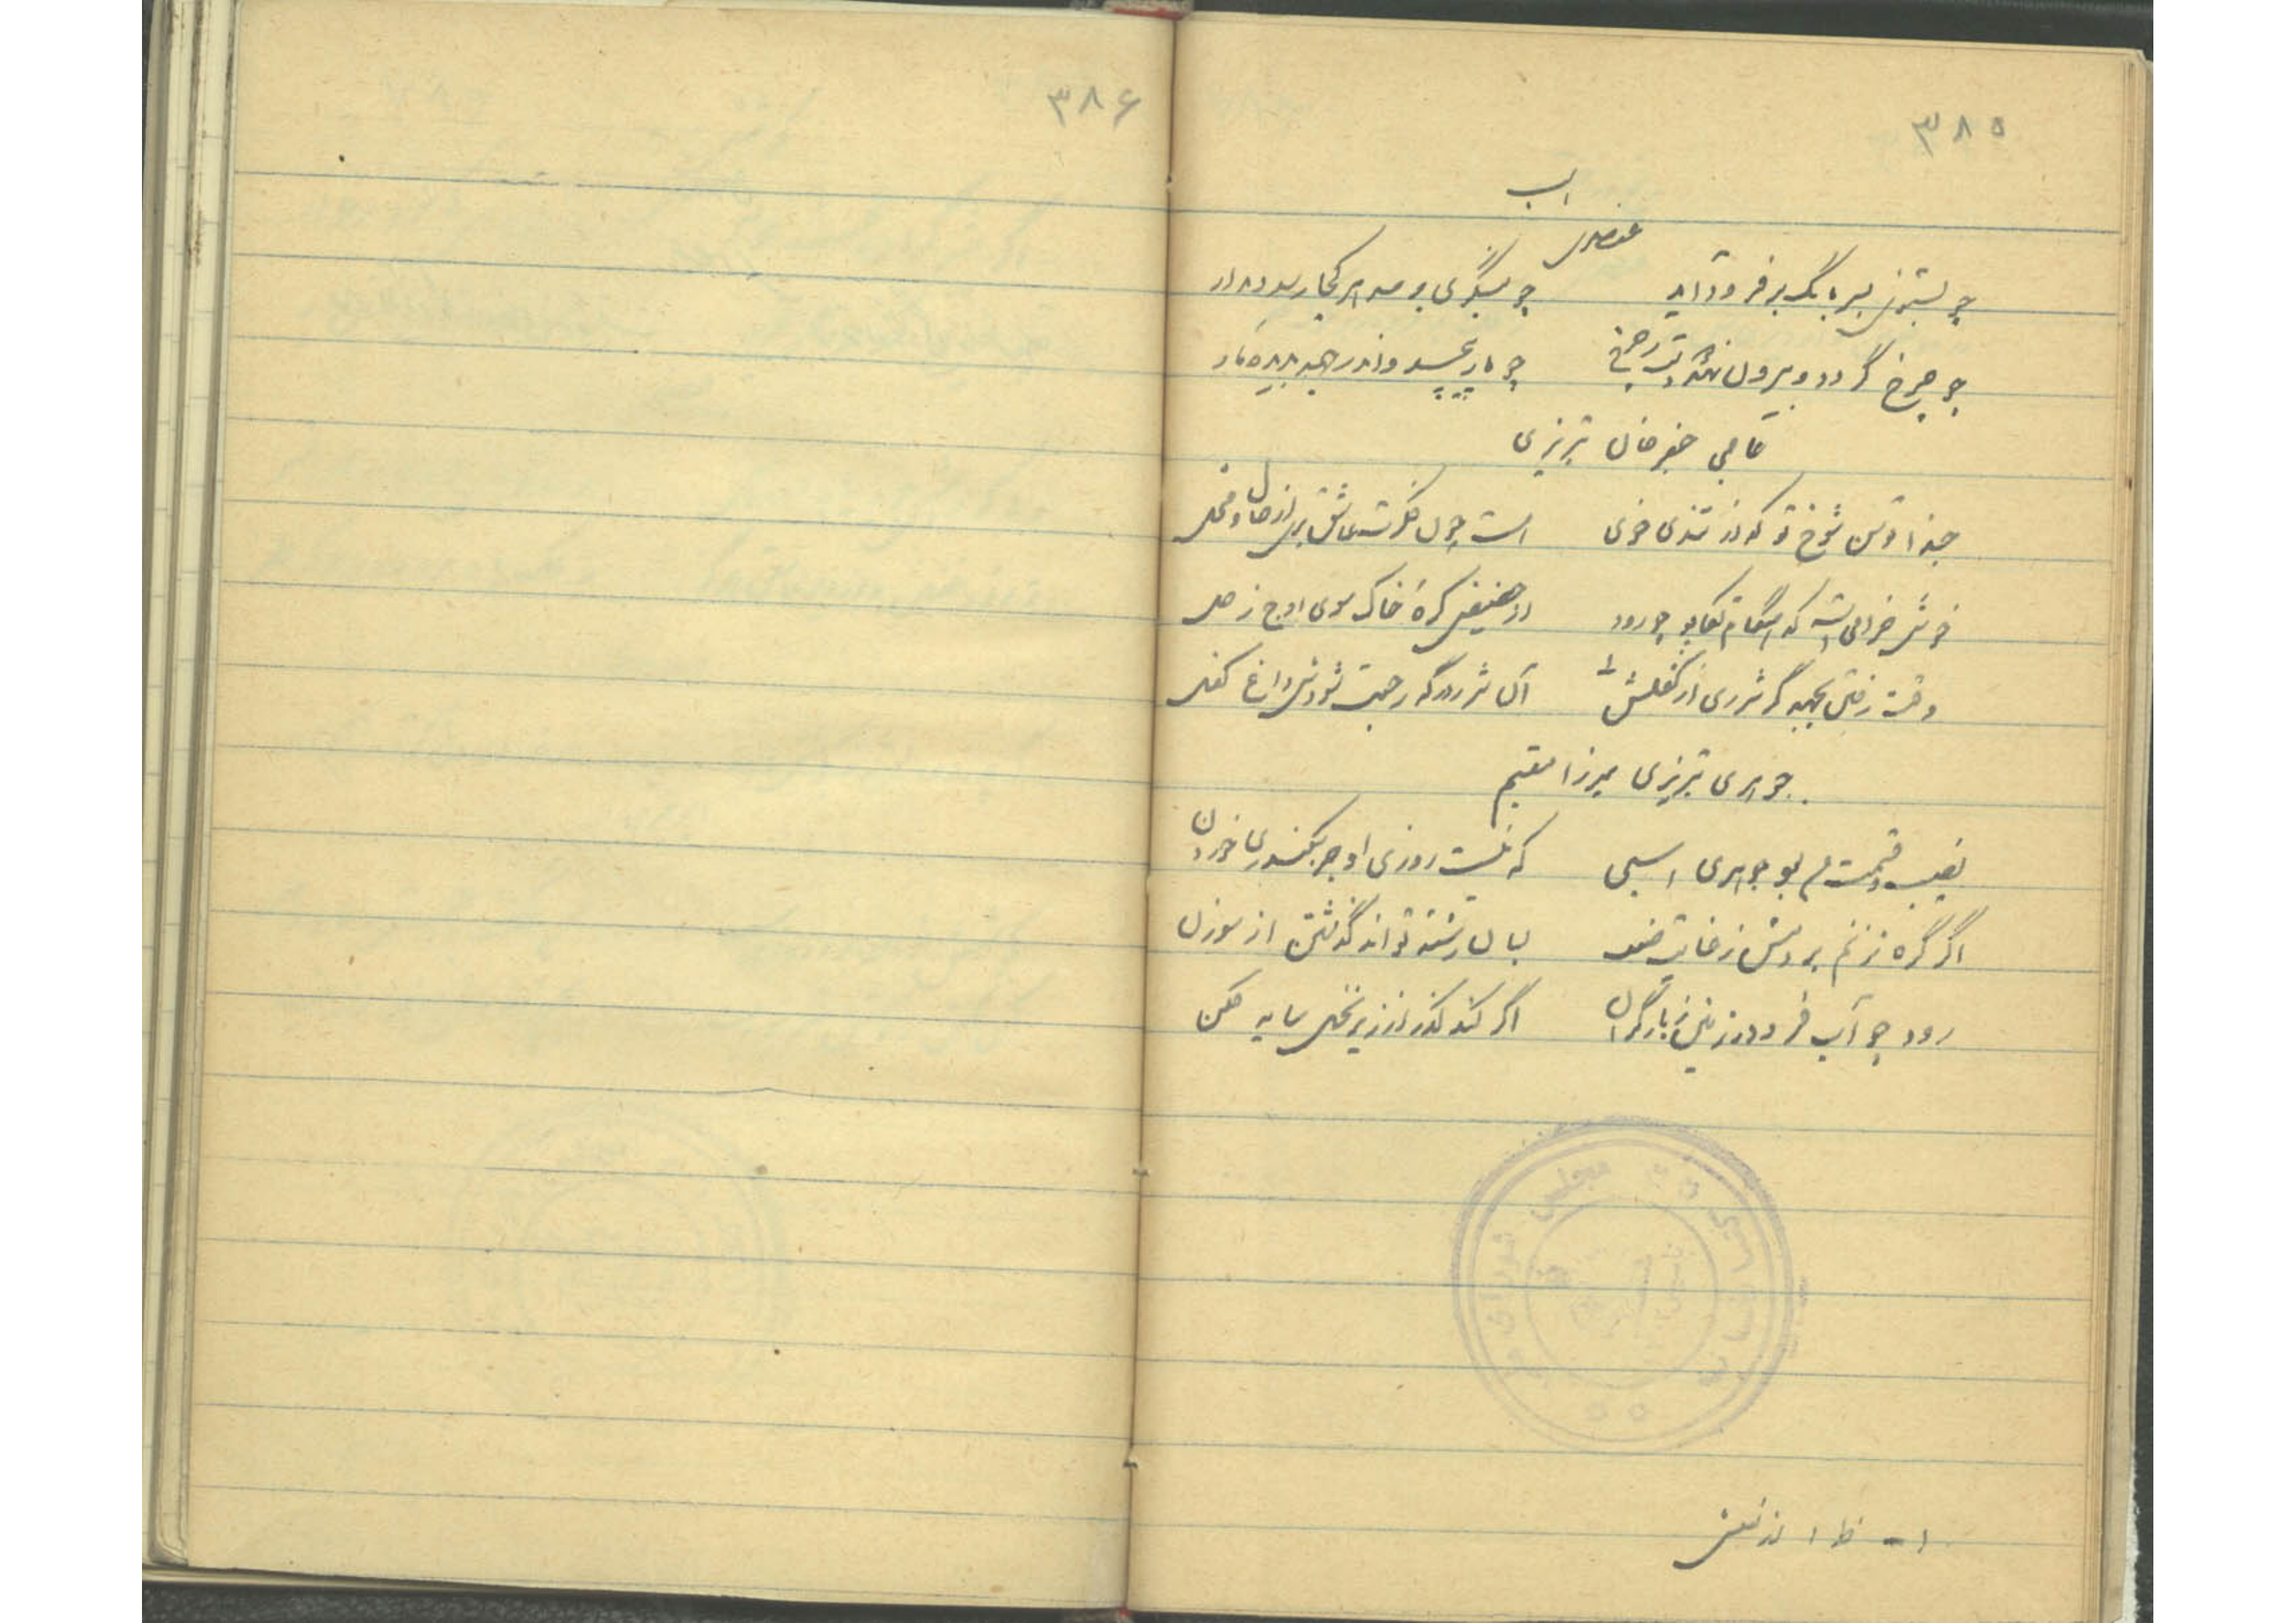 ۳۸۵
اسب
عنصری
چو بشنوی بسر بانگ بر فرود آید چو بنگری بر هر کجا رسد دیدار
چو چرخ گردد و بیرون نهد چو مار پیچد و اندر جهد بدیده مار
حاجی جعفر خان تبریزی
حبذا توسن شوخ تو که از تندی خوی است چون فکرت عشاق بری از حال و محل
خوش خرامی است که هنگام تکاپو چو رود از حضیض کره خاک سوی اوج زحل
وقت رفتن بجهد گر شرری از کفلش ۱ آن شرر در گه رجعت شودش داغ کفل
جوهری تبریزی میرزا مقیم
نصیب و قسمت من بود جوهری اسبی که نیست روزی او جز سکندری خوردن
اگر گره نزنم بر دمش ز غایت ضعف بسان رشته تواند گذشتن از سوزن
رود چو آب فرو در زمین ز بار گران اگر کند گذر از زیر نخل سایه فکن
۱- ظ: از نعلش
مجلس شورای
۳۸۶